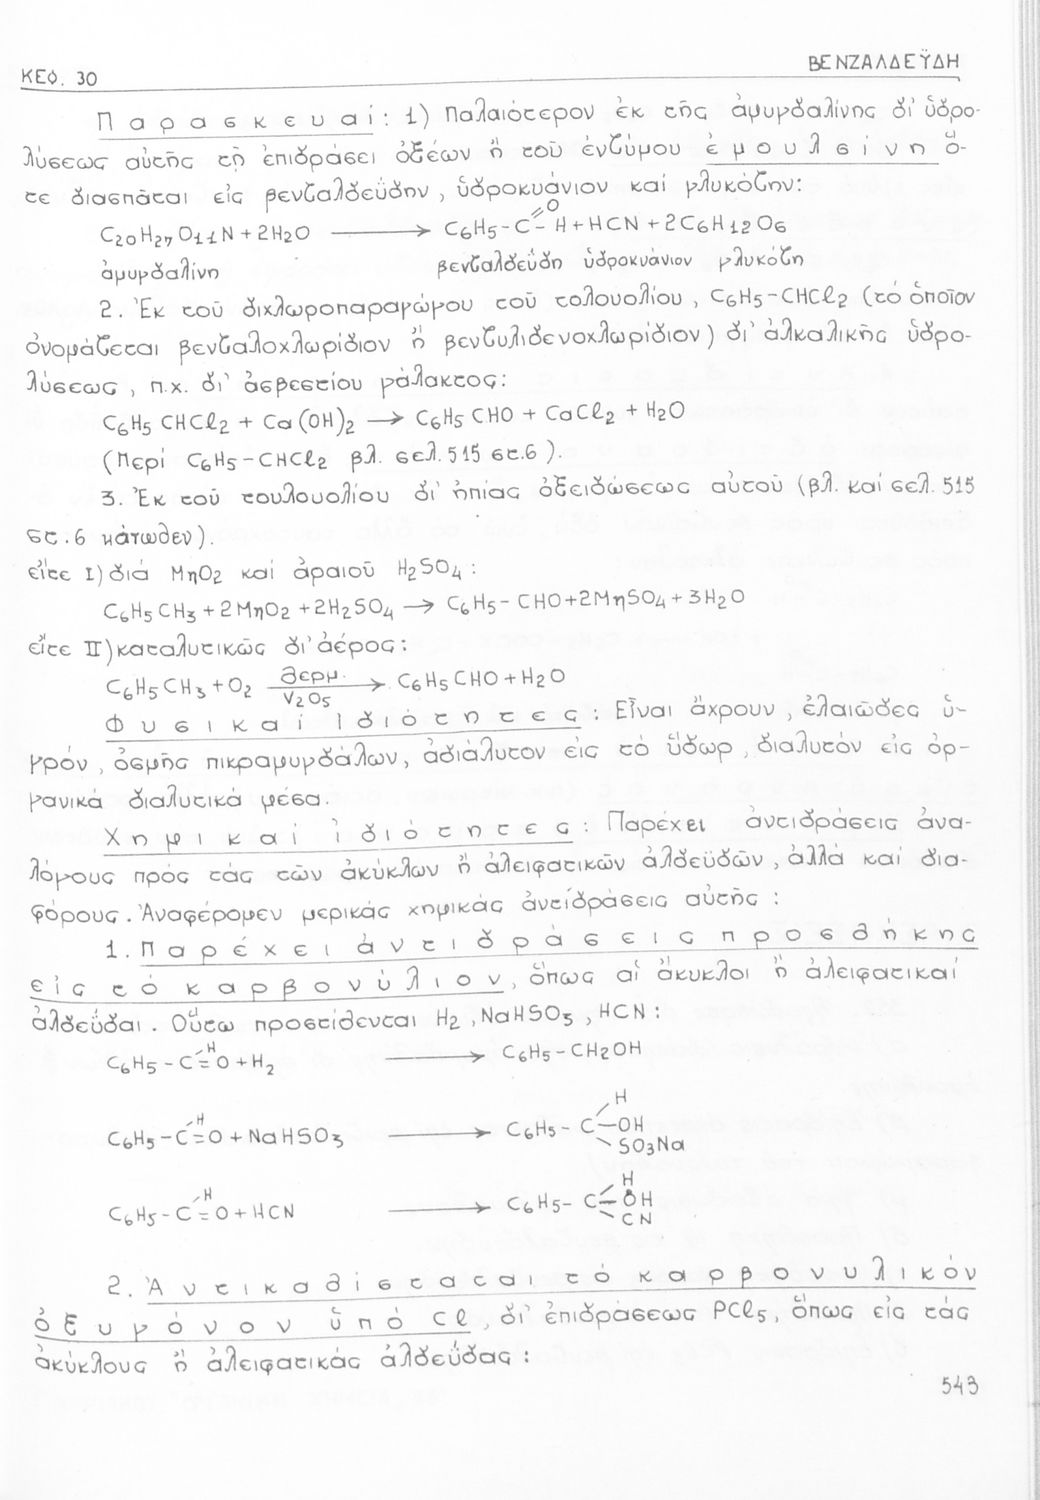 ΚΕΦ. 30
ΒΕΝΖΑΛΔΕΫΔΗ
Παρασκευαί: 1) Παλαιότερον ἐκ τῆς ἀμυγδαλίνης δι' ὑδρο-
λύσεως αὐτῆς τῇ ἐπιδράσει ὀξέων ἤ τοῦ ἐνζύμου ἐμουλσίνη ὅ-
τε διασπᾶται εἰς βενζαλδεΰδην, ὑδροκυάνιον καί γλυκόζην:
C20H27O11N + 2H2O ⟶ C6H5-C=O-H + HCN + 2C6H12O6
ἀμυγδαλίνη βενζαλδεΰδη ὑδροκυάνιον γλυκόζη
2. Ἐκ τοῦ διχλωροπαραγώγου τοῦ τολουολίου, C6H5-CHCl2 (τό ὁποῖον
ὀνομάζεται βενζαλοχλωρίδιον ἤ βενζυλιδενοχλωρίδιον) δι' ἀλκαλικῆς ὑδρο-
λύσεως, π.χ. δι' ἀσβεστίου γάλακτος:
C6H5CHCl2 + Ca(OH)2 ⟶ C6H5CHO + CaCl2 + H2O
(Περί C6H5-CHCl2 βλ. σελ. 515 στ. 6).
3. Ἐκ τοῦ τουλουολίου δι' ἠπίας ὀξειδώσεως αὐτοῦ (βλ. καί σελ. 515
στ. 6 κάτωθεν).
εἴτε I) διά MnO2 καί ἀραιοῦ H2SO4:
C6H5CH3 + 2MnO2 + 2H2SO4 ⟶ C6H5-CHO + 2MnSO4 + 3H2O
εἴτε II) καταλυτικῶς δι' ἀέρος:
C6H5CH3 + O2 θερμ. V2O5 ⟶ C6H5CHO + H2O
Φυσικαί Ἰδιότητες: Εἶναι ἄχρουν, ἐλαιῶδες ὑ-
γρόν, ὀσμῆς πικραμυγδάλων, ἀδιάλυτον εἰς τό ὕδωρ, διαλυτόν εἰς ὀρ-
γανικά διαλυτικά μέσα.
Χημικαί ἰδιότητες: Παρέχει ἀντιδράσεις ἀνα-
λόγους πρός τάς τῶν ἀκύκλων ἤ ἀλειφατικῶν ἀλδεϋδῶν, ἀλλά καί δια-
φόρους. Ἀναφέρομεν μερικάς χημικάς ἀντιδράσεις αὐτῆς:
1. Παρέχει ἀντιδράσεις προσθήκης
εἰς τό καρβονύλιον, ὅπως αἱ ἄκυκλοι ἤ ἀλειφατικαί
ἀλδεΰδαι. Οὕτω προστίθενται H2, NaHSO3, HCN:
C6H5-C-H=O + H2 ⟶ C6H5-CH2OH
C6H5-C-H=O + NaHSO3 ⟶ C6H5-C-H-OH-SO3Na
C6H5-C-H=O + HCN ⟶ C6H5-C-H-OH-CN
2. Ἀντικαθίσταται τό καρβονυλικόν
ὀξυγόνον ὑπό Cl, δι' ἐπιδράσεως PCl5, ὅπως εἰς τάς
ἀκύκλους ἤ ἀλειφατικάς ἀλδεΰδας:
543